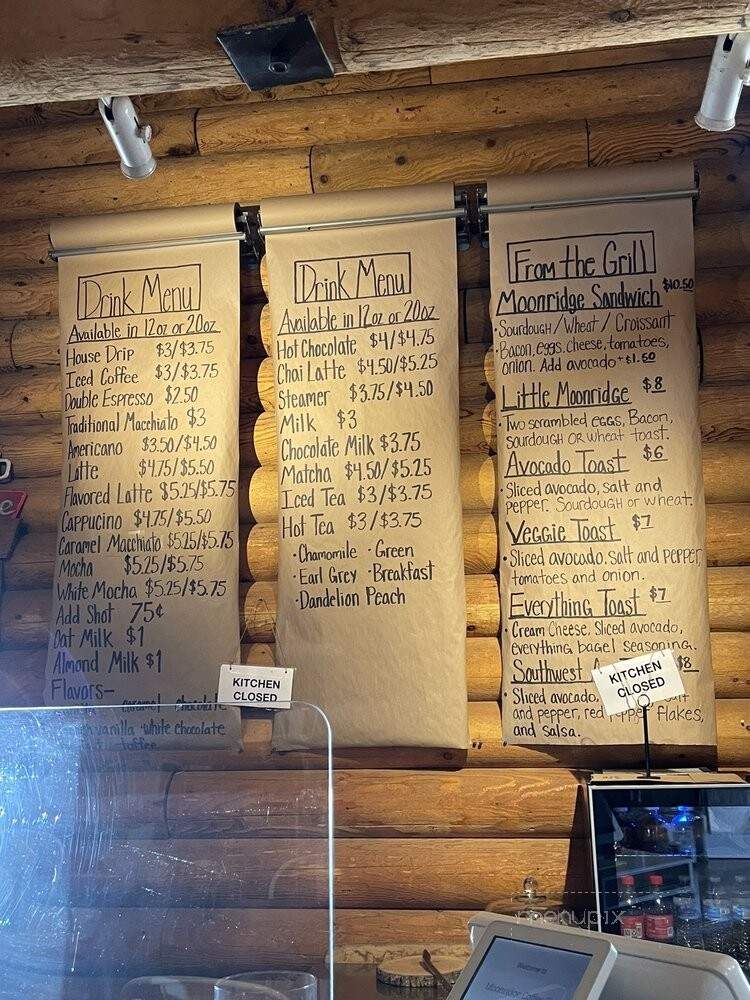 Drink Menu
Available in 12oz or 20oz
House Drip $3/$3.75
Iced Coffee $3/$3.75
Double Espresso $2.50
Traditional Macchiato $3
Americano $3.50/$4.50
Latte $4.75/$5.50
Flavored Latte $5.25/$5.75
Cappucino $4.75/$5.50
Caramel Macchiato $5.25/$5.75
Mocha $5.25/$5.75
White Mocha $5.25/$5.75
Add Shot 75¢
Oat Milk $1
Almond Milk $1
Flavors-
caramel chocolate
vanilla ·white chocolate
toffee
KITCHEN
CLOSED
Drink Menu
Available in 12oz or 20oz
Hot Chocolate $4/$4.75
Chai Latte $4.50/$5.25
Steamer $3.75/$4.50
Milk $3
Chocolate Milk $3.75
Matcha $4.50/$5.25
Iced Tea $3/$3.75
Hot Tea $3/$3.75
·Chamomile ·Green
·Earl Grey ·Breakfast
·Dandelion Peach
From the Grill
Moonridge Sandwich $10.50
·Sourdough/Wheat/Croissant
·Bacon, eggs, cheese, tomatoes,
onion. Add avocado +$1.50
Little Moonridge $8
·Two scrambled eggs, Bacon,
sourdough OR wheat toast.
Avocado Toast $6
·Sliced avocado, salt and
pepper. Sourdough or wheat.
Veggie Toast $7
·Sliced avocado, salt and pepper,
tomatoes and onion.
Everything Toast $7
·Cream Cheese, Sliced avocado,
everything bagel seasoning.
Southwest $8
·Sliced avocado,
and pepper, red pepper flakes,
and salsa.
KITCHEN
CLOSED
menupix
Welcome to